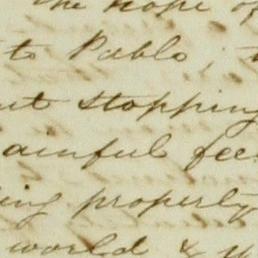 the hope of
to Pablo;
ut stopping
ainful fee
ing property
world & y